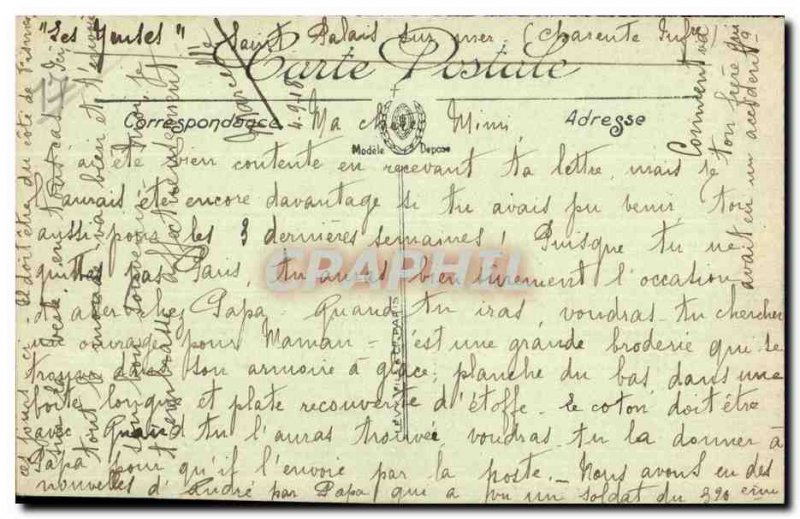 "Les Yeuses" Saint Palais sur mer (Charente Infre)
Carte Postale
Correspondance
Adresse
Modèle Déposé
4.9.16
Ma chère Mimi,
J'ai été bien contente en recevant ta lettre, mais je
l'aurais été encore davantage si tu avais pu venir, toi
aussi pour les 3 dernières semaines! Puisque tu ne
quittes pas Paris, tu auras bien sûrement l'occasion
d'aller chez Papa. Quand tu iras, voudras-tu chercher
un ouvrage pour Maman - c'est une grande broderie qui se
trouve dans son armoire à glace, planche du bas dans une
boîte longue et plate recouverte d'étoffe - le coton doit être
avec. Quand tu l'auras trouvée voudras-tu la donner à
Papa pour qu'il l'envoie par la poste. - Nous avons eu des
nouvelles d'André par Papa qui a vu un soldat du 320 ème
ces jours-ci, il doit être du côté de
reste, en tout cas, ici
tout le monde va bien et
affectueusement
Marcelle
Comment va
ton frère qui
avait eu un accident?
LEVY FILS ET CIE PARIS
17
CPAPHIL